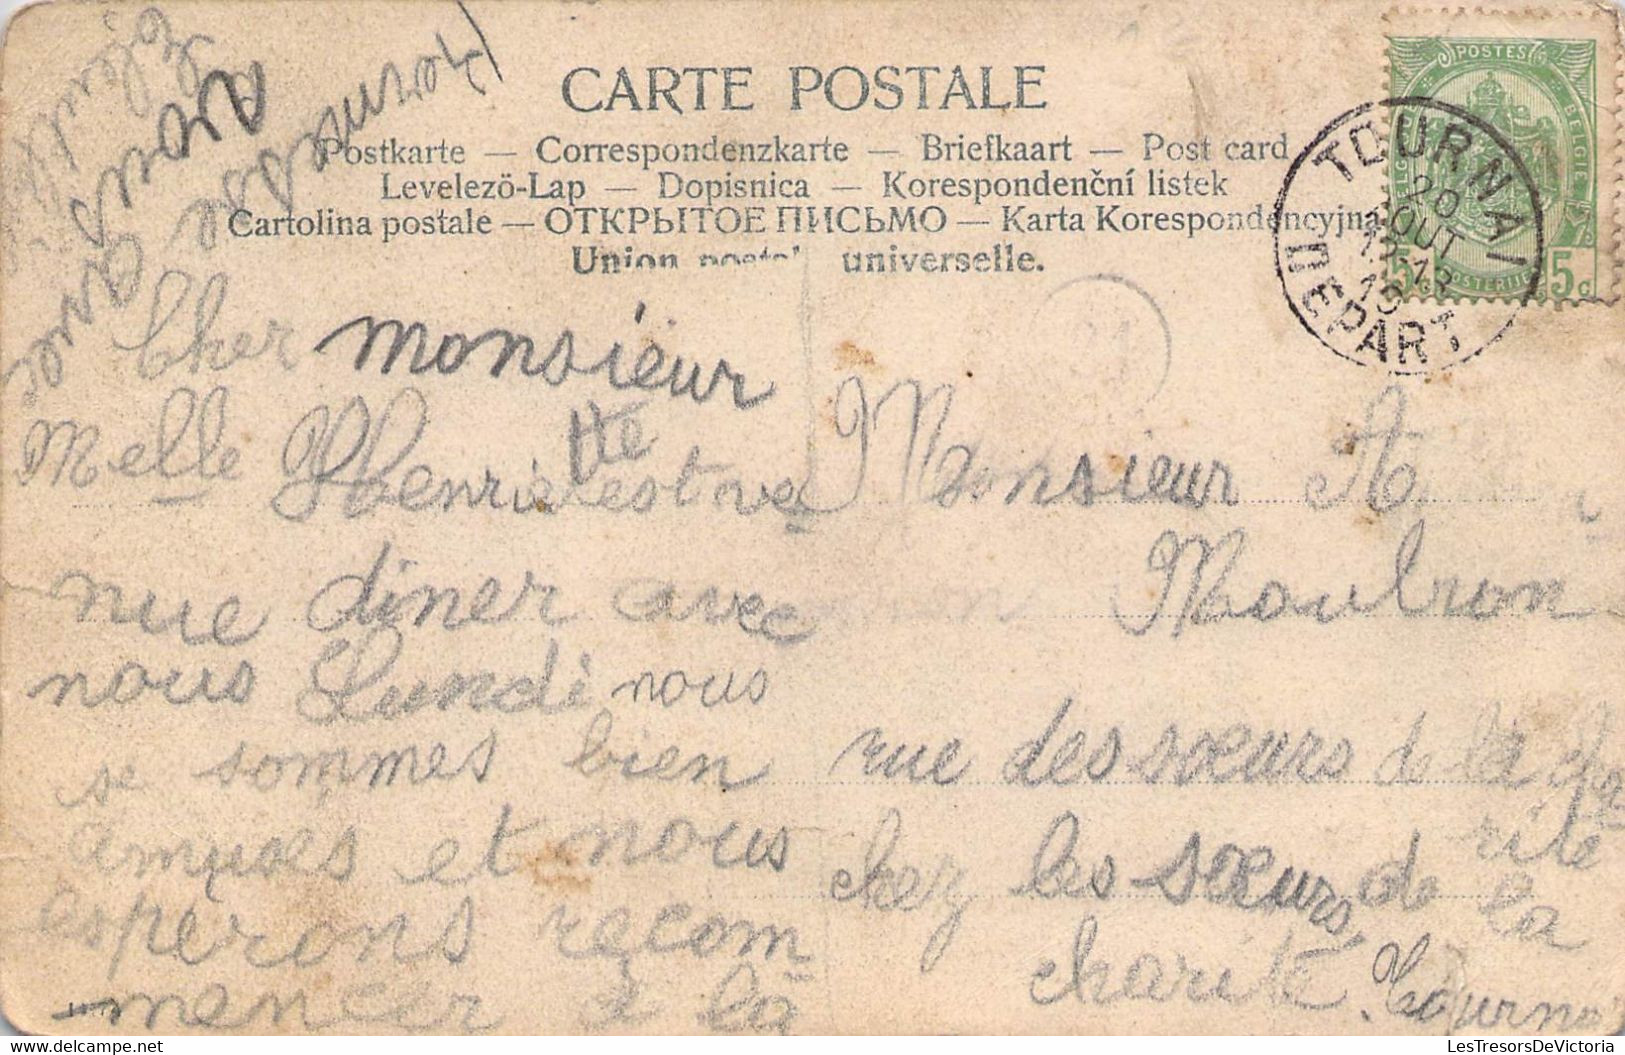 CARTE POSTALE
Postkarte — Correspondenzkarte — Briefkaart — Post card
Levelezö-Lap — Dopisnica — Korespondenční listek
Cartolina postale — ОТКРЫТОЕ ПИСЬМО — Karta Korespondencyjna
Union postale universelle.
POSTES
BELGIQUE BELGIE
POSTERIJEN
5c 5c
TOURNAI
20
OUT
12-13
10
DEPART
Cher monsieur
Melle Henriette est ve
nue diner avec
nous Lundi nous
se sommes bien
amusés et nous
espérons recom
mencer a la
avec
nous
Monsieur A
Moulron
rue des sœurs de la cha
rité
chez les sœurs de la
charité Tournai
LesTresorsDeVictoria
www.delcampe.net